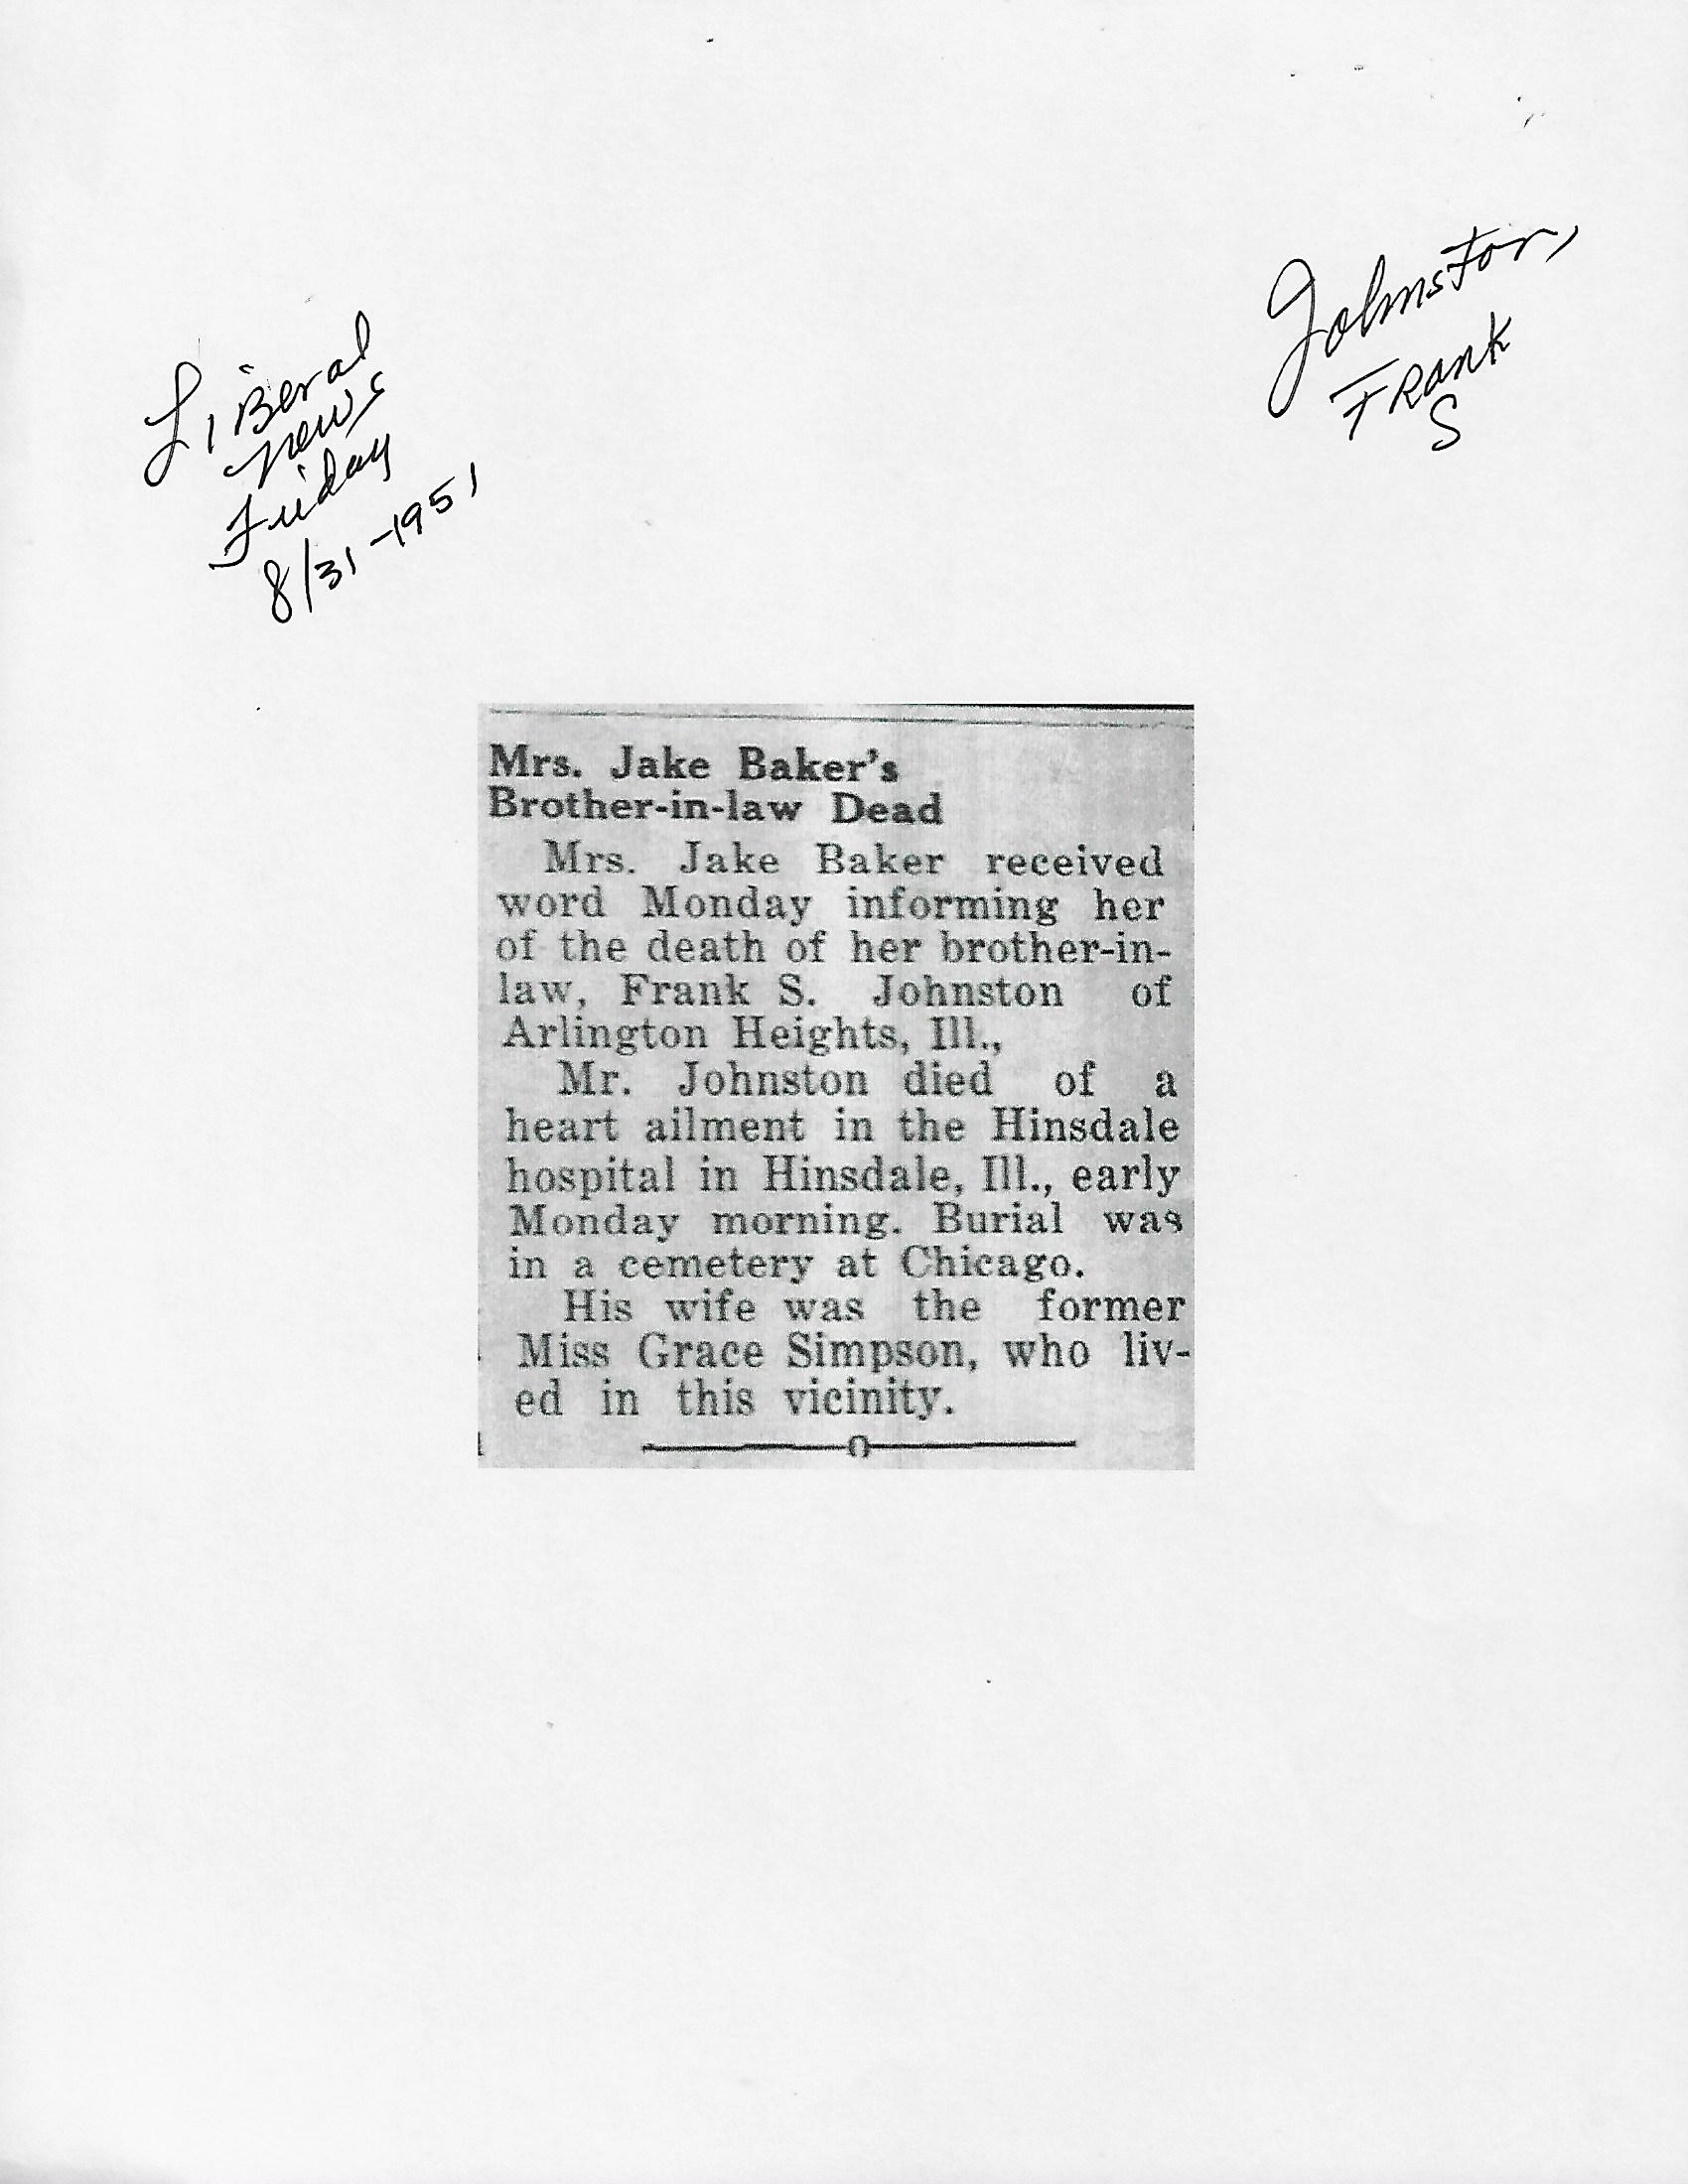 Johnston,
FRank
S
LiBeral
news
Friday
8/31-1951
Mrs. Jake Baker's
Brother-in-law Dead
Mrs. Jake Baker received
word Monday informing her
of the death of her brother-in-
law, Frank S. Johnston of
Arlington Heights, Ill.,
Mr. Johnston died of a
heart ailment in the Hinsdale
hospital in Hinsdale, Ill., early
Monday morning. Burial was
in a cemetery at Chicago.
His wife was the former
Miss Grace Simpson, who liv-
ed in this vicinity.